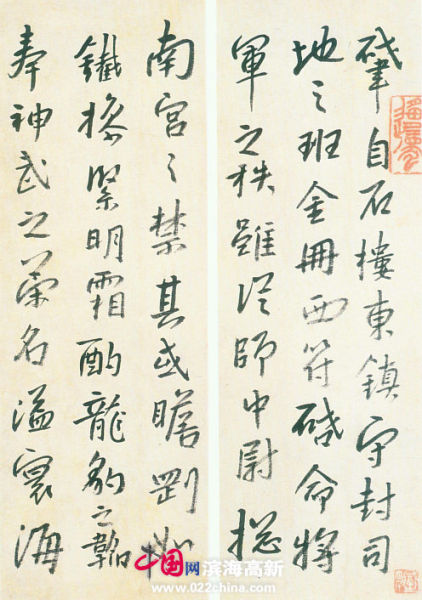 肇自石樓東鎮守封司
地之班金冊西符啓命將
軍之秩雖從師中尉摠
南宮之禁其或瞻
鐵緊明霜酌龍豹之韜
奉神武之榮名溢寰海
中国网 滨海高新
www.022china.com